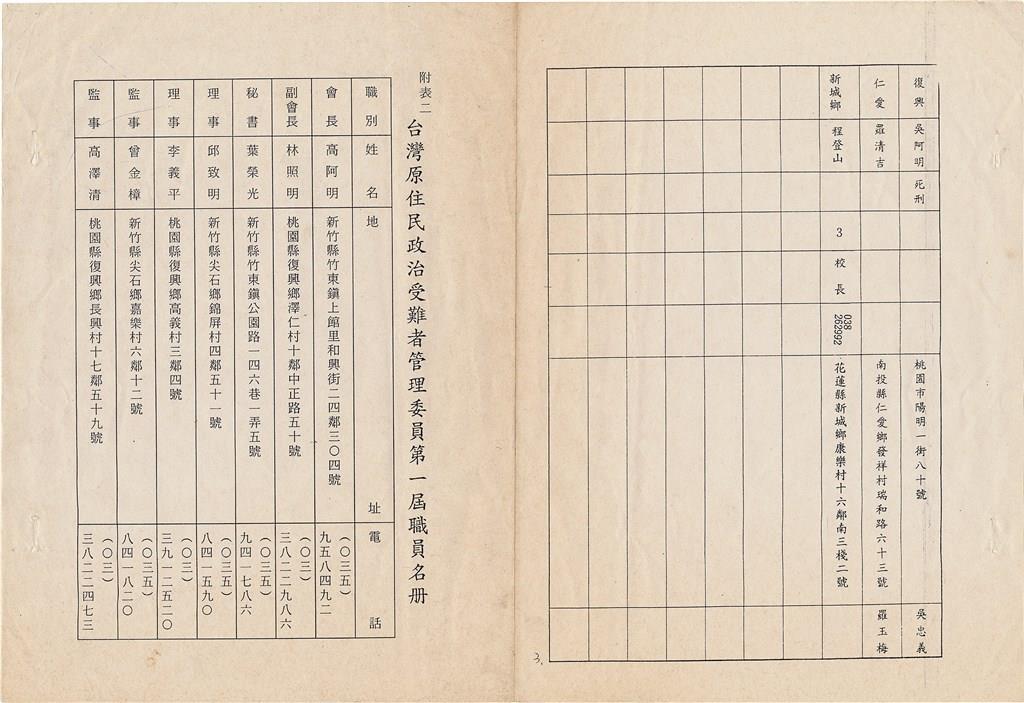 復興 吳阿明 死刑 桃園市陽明一街八十號 吳忠義
仁愛 羅清吉 南投縣仁愛鄉發祥村瑞和路六十三號 羅玉梅
新城鄉 程登山 3 校長 038 262992 花蓮縣新城鄉康樂村十六鄰南三棧二號
3.
附表二
台灣原住民政治受難者管理委員第一屆職員名册
職別 姓名 地址 電話
會長 高阿明 新竹縣竹東鎮上館里和興街二四鄰三〇四號 (〇三五) 九五八四九二
副會長 林照明 桃園縣復興鄉澤仁村十鄰中正路五十號 (〇三) 三八二二九八六
秘書 葉榮光 新竹縣竹東鎮公園路一四六巷一弄五號 (〇三五) 九四一七八六
理事 邱致明 新竹縣尖石鄉錦屏村四鄰五十一號 (〇三五) 八四一五九〇
理事 李義平 桃園縣復興鄉高義村三鄰四號 (〇三) 三九一二五二〇
監事 曾金樟 新竹縣尖石鄉嘉樂村六鄰十二號 (〇三五) 八四一八二〇
監事 高澤清 桃園縣復興鄉長興村十七鄰五十九號 (〇三) 三八二二四七三